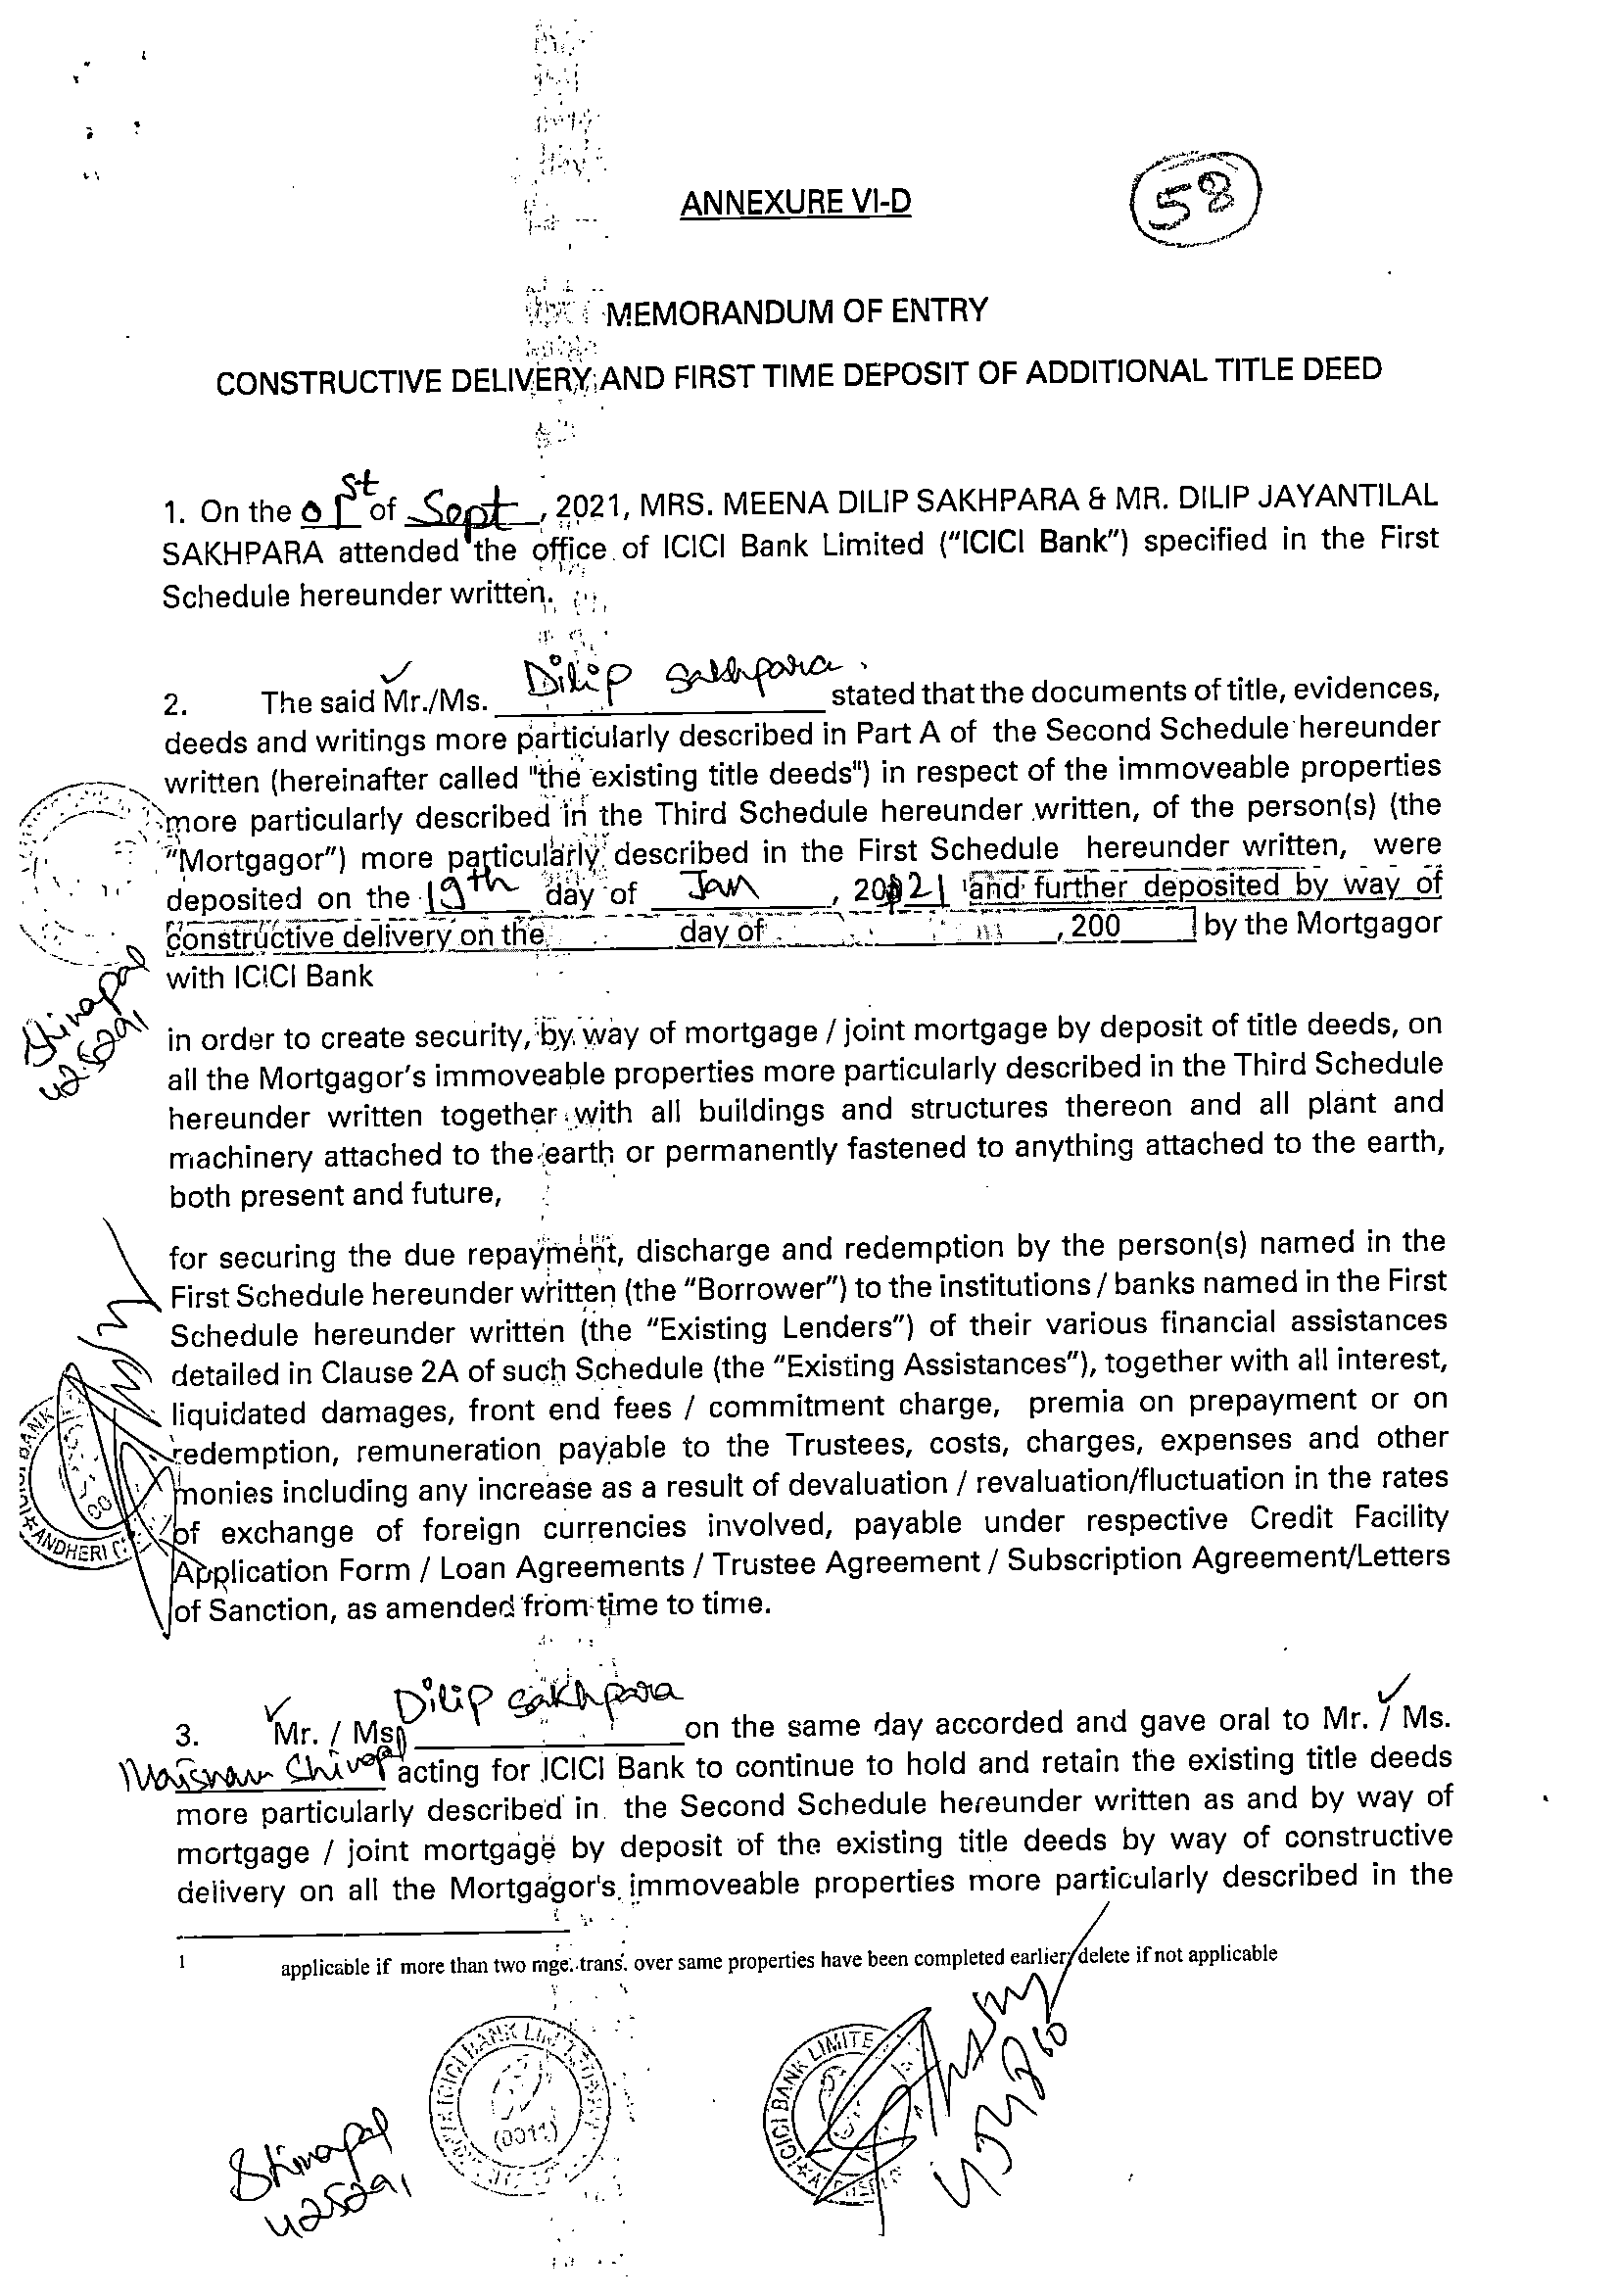 ANNEXURE VI-D
58
MEMORANDUM OF ENTRY
CONSTRUCTIVE DELIVERY AND FIRST TIME DEPOSIT OF ADDITIONAL TITLE DEED
1. On the 01st of Sept, 2021, MRS. MEENA DILIP SAKHPARA & MR. DILIP JAYANTILAL
SAKHPARA attended the office of ICICI Bank Limited ("ICICI Bank") specified in the First
Schedule hereunder written.
2. The said Mr./Ms. Dilip Sakhpara. stated that the documents of title, evidences,
deeds and writings more particularly described in Part A of the Second Schedule hereunder
written (hereinafter called "the existing title deeds") in respect of the immoveable properties
more particularly described in the Third Schedule hereunder written, of the person(s) (the
"Mortgagor") more particularly described in the First Schedule hereunder written, were
deposited on the 19th day of Jan, 2021 1and further deposited by way of
constructive delivery on the day of , 200 by the Mortgagor
with ICICI Bank
Shivapal
425291
in order to create security, by way of mortgage / joint mortgage by deposit of title deeds, on
all the Mortgagor's immoveable properties more particularly described in the Third Schedule
hereunder written together with all buildings and structures thereon and all plant and
machinery attached to the earth or permanently fastened to anything attached to the earth,
both present and future,
for securing the due repayment, discharge and redemption by the person(s) named in the
First Schedule hereunder written (the "Borrower") to the institutions / banks named in the First
Schedule hereunder written (the "Existing Lenders") of their various financial assistances
detailed in Clause 2A of such Schedule (the "Existing Assistances"), together with all interest,
liquidated damages, front end fees / commitment charge, premia on prepayment or on
redemption, remuneration payable to the Trustees, costs, charges, expenses and other
monies including any increase as a result of devaluation / revaluation/fluctuation in the rates
of exchange of foreign currencies involved, payable under respective Credit Facility
Application Form / Loan Agreements / Trustee Agreement / Subscription Agreement/Letters
of Sanction, as amended from time to time.
ICICI BANK ANDHERI
3. Mr. / Ms. Dilip Sakhpara on the same day accorded and gave oral to Mr. / Ms.
Maisnam Shivapal acting for ICICI Bank to continue to hold and retain the existing title deeds
more particularly described in the Second Schedule hereunder written as and by way of
mortgage / joint mortgage by deposit of the existing title deeds by way of constructive
delivery on all the Mortgagor's immoveable properties more particularly described in the
1 applicable if more than two mge. trans. over same properties have been completed earlier, delete if not applicable
ICICI BANK
(0011)
ICICI BANK LIMITE
Shivapal
425291